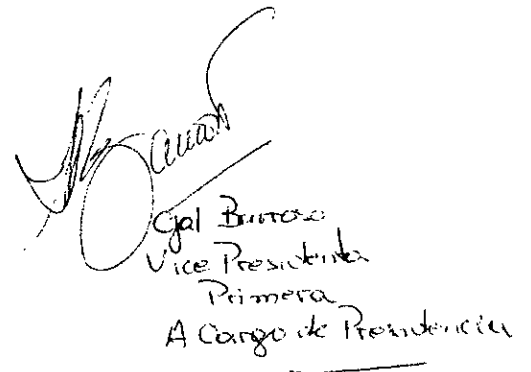 Gal Barroso
Vice Presidenta
Primera
A Cargo de Presidencia